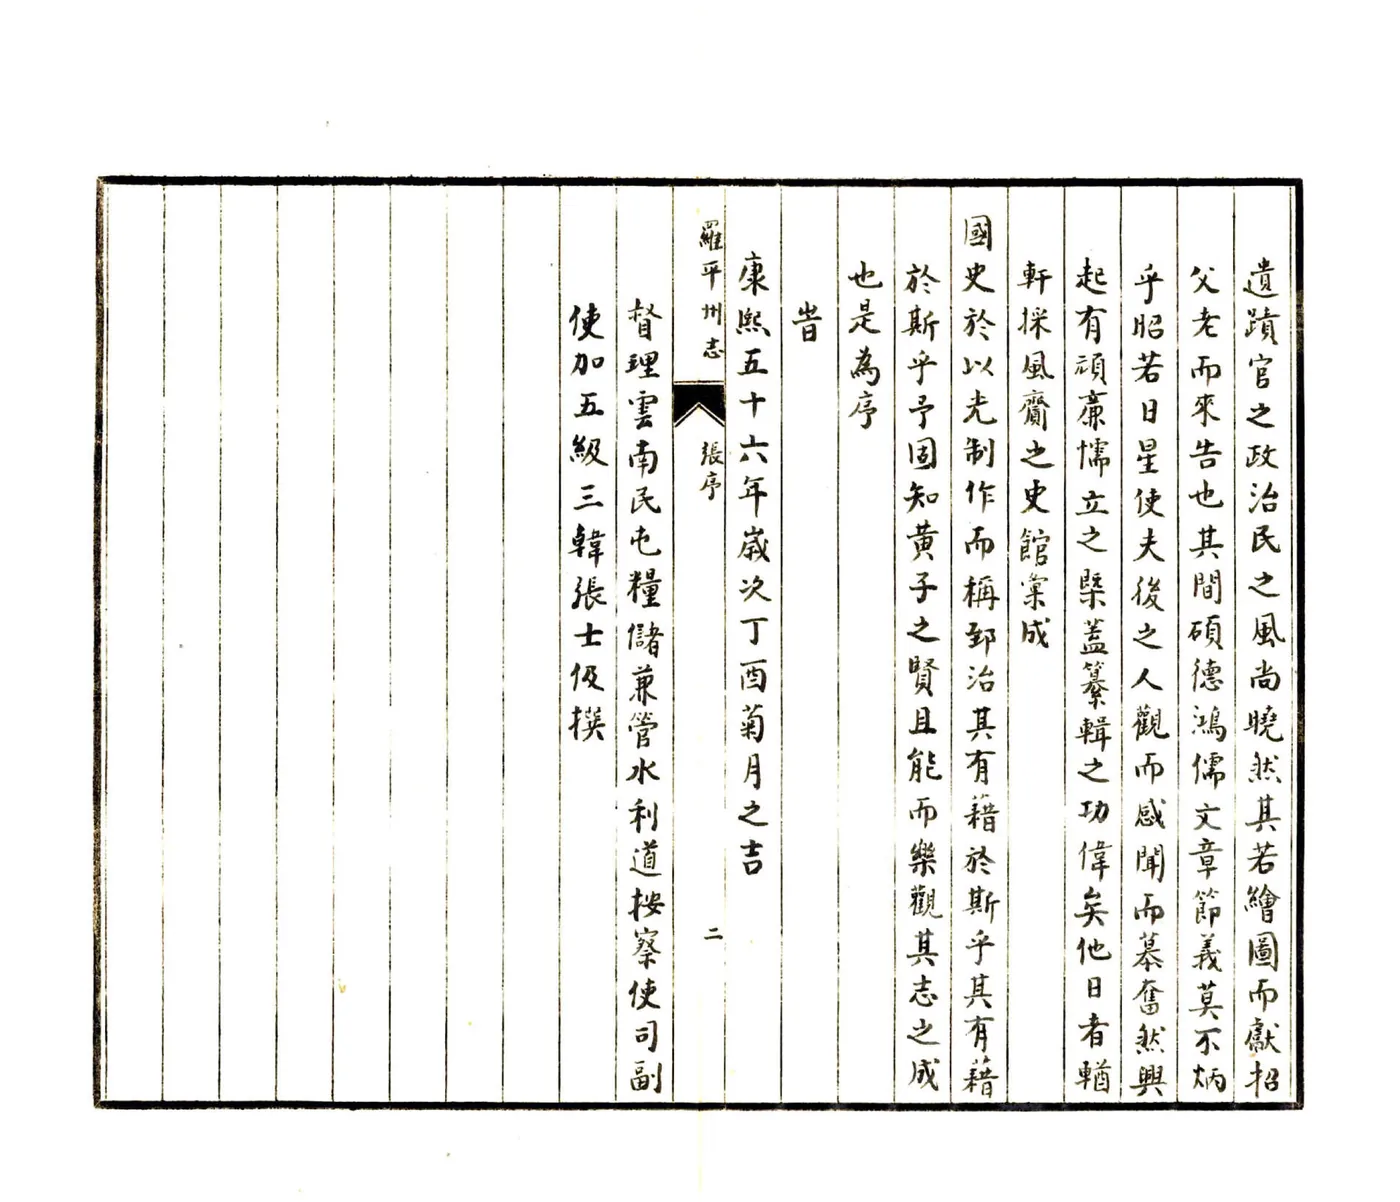 遺蹟官之政治民之風尚曉然其若繪圖而獻招
父老而來告也其間碩德鴻儒文章節義莫不炳
乎昭若日星使夫後之人觀而感聞而慕奮然興
起有頑廉懦立之槩蓋纂輯之功偉矣他日者輶
軒採風齎之史館彙成
國史於以光制作而稱郅治其有藉於斯乎其有藉
於斯乎予固知黄子之賢且能而樂觀其志之成
也是為序
旹
康熙五十六年歲次丁酉菊月之吉
羅平州志
張序
二
督理雲南民屯糧儲兼管水利道按察使司副
使加五級三韓張士伋撰